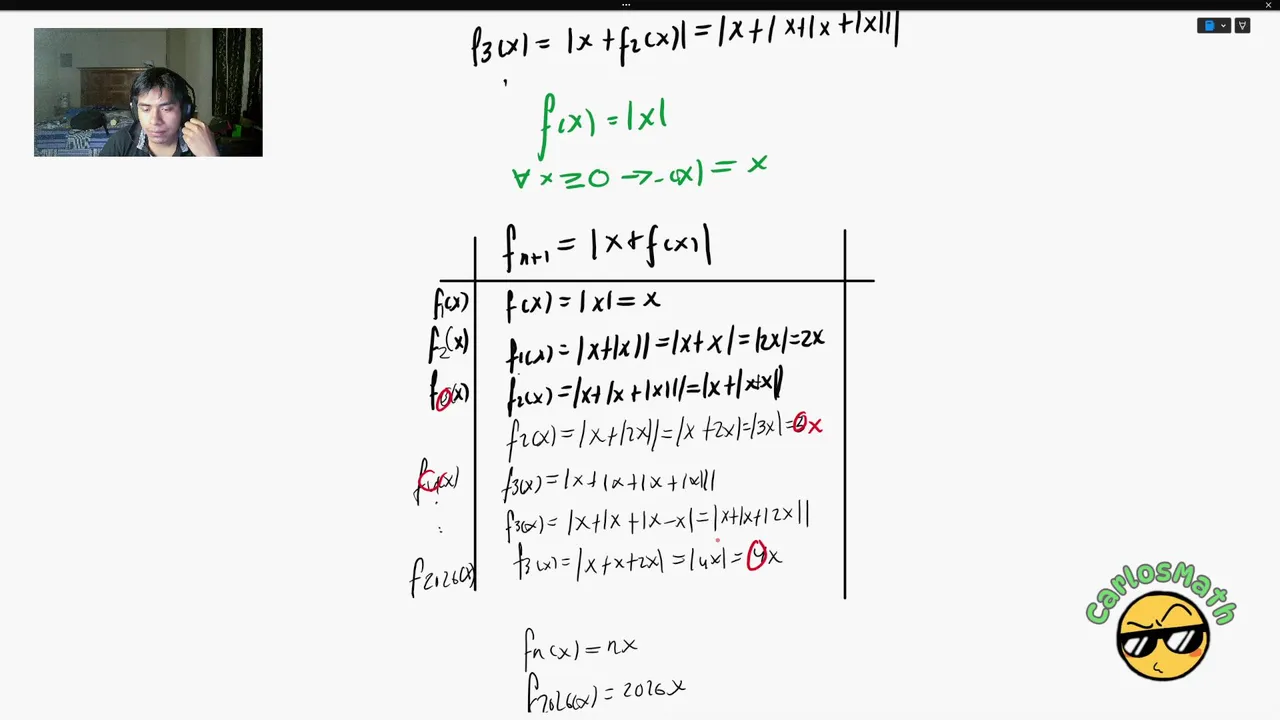 f3(x) = |x + f2(x)| = |x + |x + |x + |x||||
f(x) = |x|
∀ x ≥ 0 → -(x) = x
fn+1 = |x + f(x)|
f1(x) f(x) = |x| = x
f2(x) f1(x) = |x+|x|| = |x+x| = |2x| = 2x
f3(x) f2(x) = |x+|x+|x||| = |x+|x+x||
f2(x) = |x+|2x|| = |x+2x| = |3x| = 3x
f4(x) f3(x) = |x+|x+|x+|x||||
f3(x) = |x+|x+|x-x| = |x+|x+|2x||
f2026(x) f3(x) = |x+x+2x| = |4x| = 4x
fn(x) = nx
f2026(x) = 2026x
CarlosMath